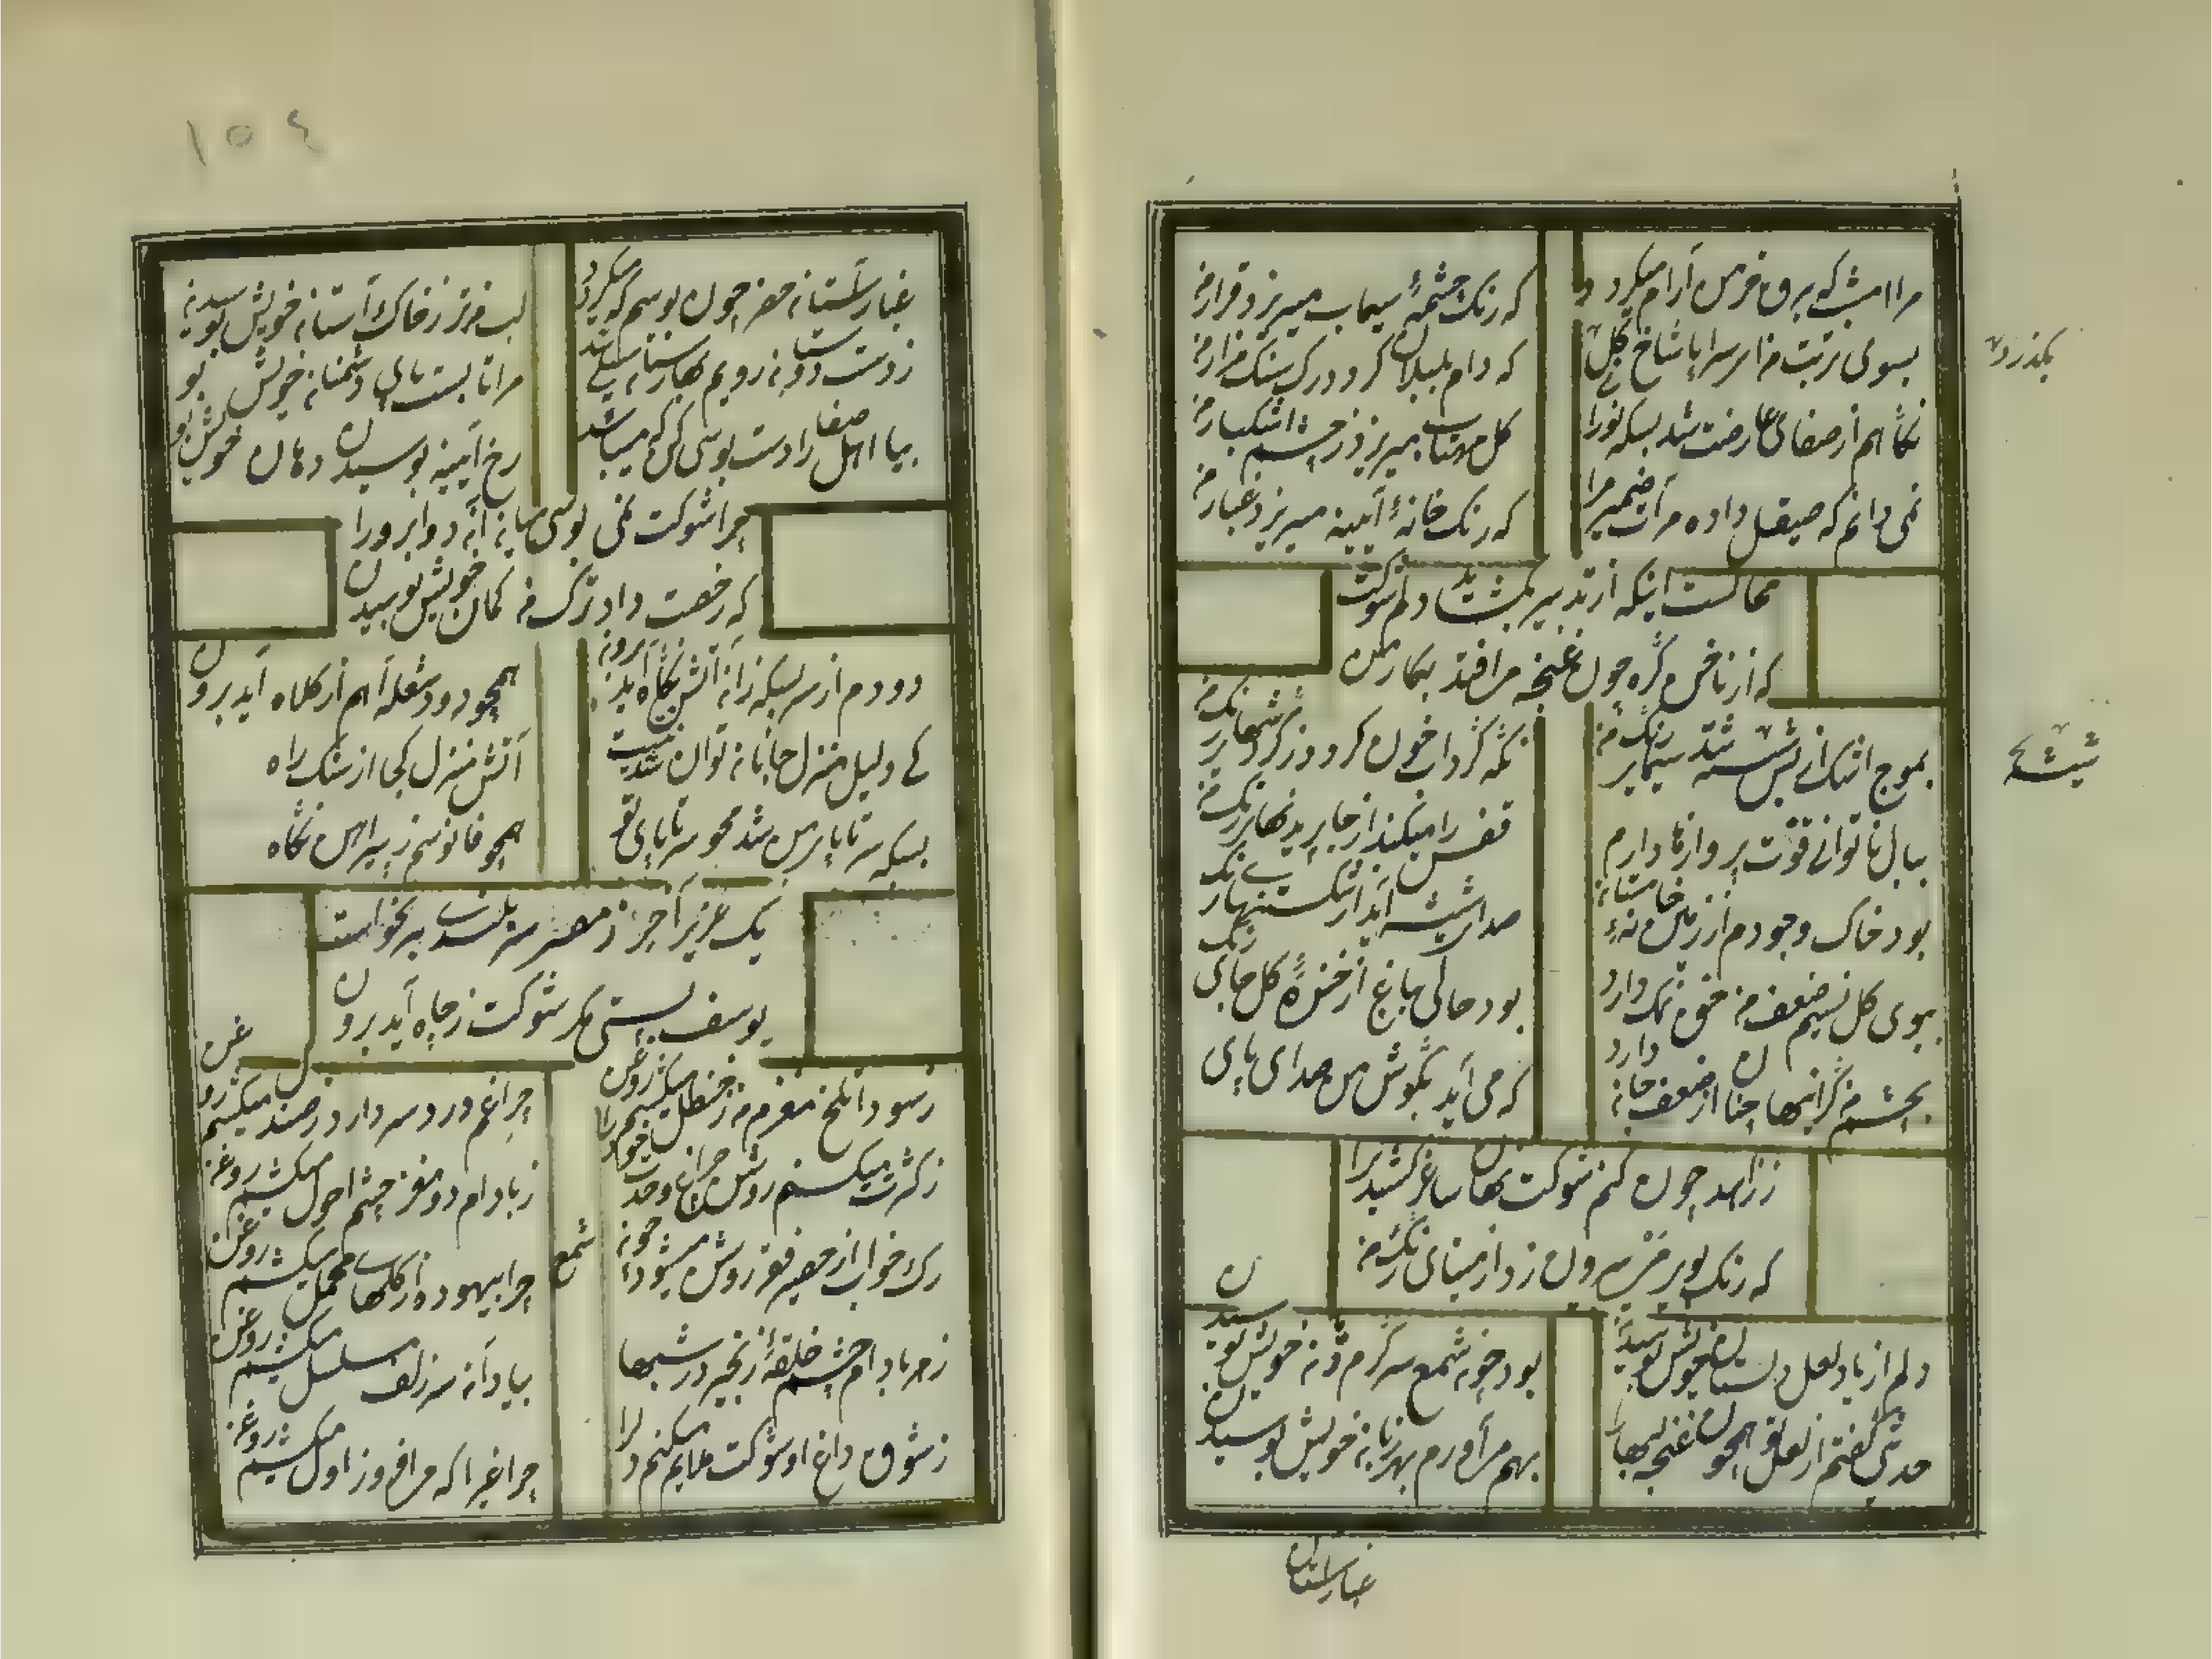 مرا امشب که برق خرمن آرام میکردد
که رنک چشمهٔ سیماب میریزد قرار من
بسوی تربت من ار سراپا شاخ کل
که دام بلبلان کردد رک سنک مزار من
نکاهم از صفای عارضت شد بسکه نورا
کل مهتاب میریزد ز چشم اشکبار من
نمی دانم که صیقل داده مرآت ضمیر مرا
که رنک خانهٔ آیینه میریزد غبار من
محالست اینکه از تدبیر بکشاید دلم شوکت
که از ناخن کره چون غنچه می افتد بکار من
بموج اشک شسته شد سیمابی رنک من
نکه کرداب خون کردد ز کردشهای رنک من
ببال ناتوانی قوت پروازها دارم
قفس را میکند از جا پریدنهای رنک من
بود خاک وجودم از زمین
صدای شیشه آید از شکستنهای رنک من
ببوی کل نسیم ضعف من دارد
بود خالی بباغ از خندهٔ کل جای
بچشم من کرانیها چنان از ضعف جا دارد
که می آید بکوش من صدای پای
ز زاهد چون کنم شوکت نهان ساغر کشیدن را
که رنک بوی می بیرون زد از مینای رنک من
دلم از یاد لعل دلستان خویش بوسیدن
بود چون شمع سرکرم زبان خویش بوسیدن
حدیثی کفتم از لعل تو همچون غنچه لبها را
بهم می آورم بهر زبان خویش بوسیدن
بکذرد
شیشه
غبار آستان
١٥٤
غبار آستان من چون بوسم که میکردد
لب من تر ز خاک آستان خویش بوسیدن
ز دست دوستان رویم بهارستان سیلی شد
مرا تا بست پای دشمنان خویش بو
بیا اهل صفا را دست بوسی کن که میباشد
رخ آیینه بوسیدن دهان خویش بو
چرا شوکت نمی بوسی میان آن دو ابرو را
که رخصت داد ترک من کمان خویش بوسیدن
دودم از سر بسکه زان آتش نکاه آید برون
همچو دود شعله آهم از کلاه آید برون
کی دلیل منزل جانان توان شد
آتش منزل کجا از سنک راه
بسکه سر تا پای من شد محو سر تا پای تو
همچو فانوسم ز پیراهن نکاه
یک عزیز آخر ز مصر سربلندی برنخواست
یوسف پستی مکر شوکت ز چاه آید برون
ز سودا تلخ مغزم من ز حنظل میکشم روغن
چراغم درد سر دارد ز صندل میکشم روغن
ز کثرت میکنم روشن چراغ وحدت خود را
ز بادام دو مغز چشم احول میکشم روغن
رک خواب از حصیر فقر روشن میشود چون شمع
چرا بیهوده از کلهای مخمل میکشم روغن
ز هر بادام چشم حلقهٔ زنجیر در شبها
بیاد آن سر زلف مسلسل میکشم روغن
ز شوق داغ او شوکت ملایم میکنم دل را
چراغی را که می افروزم اول میکشم روغن